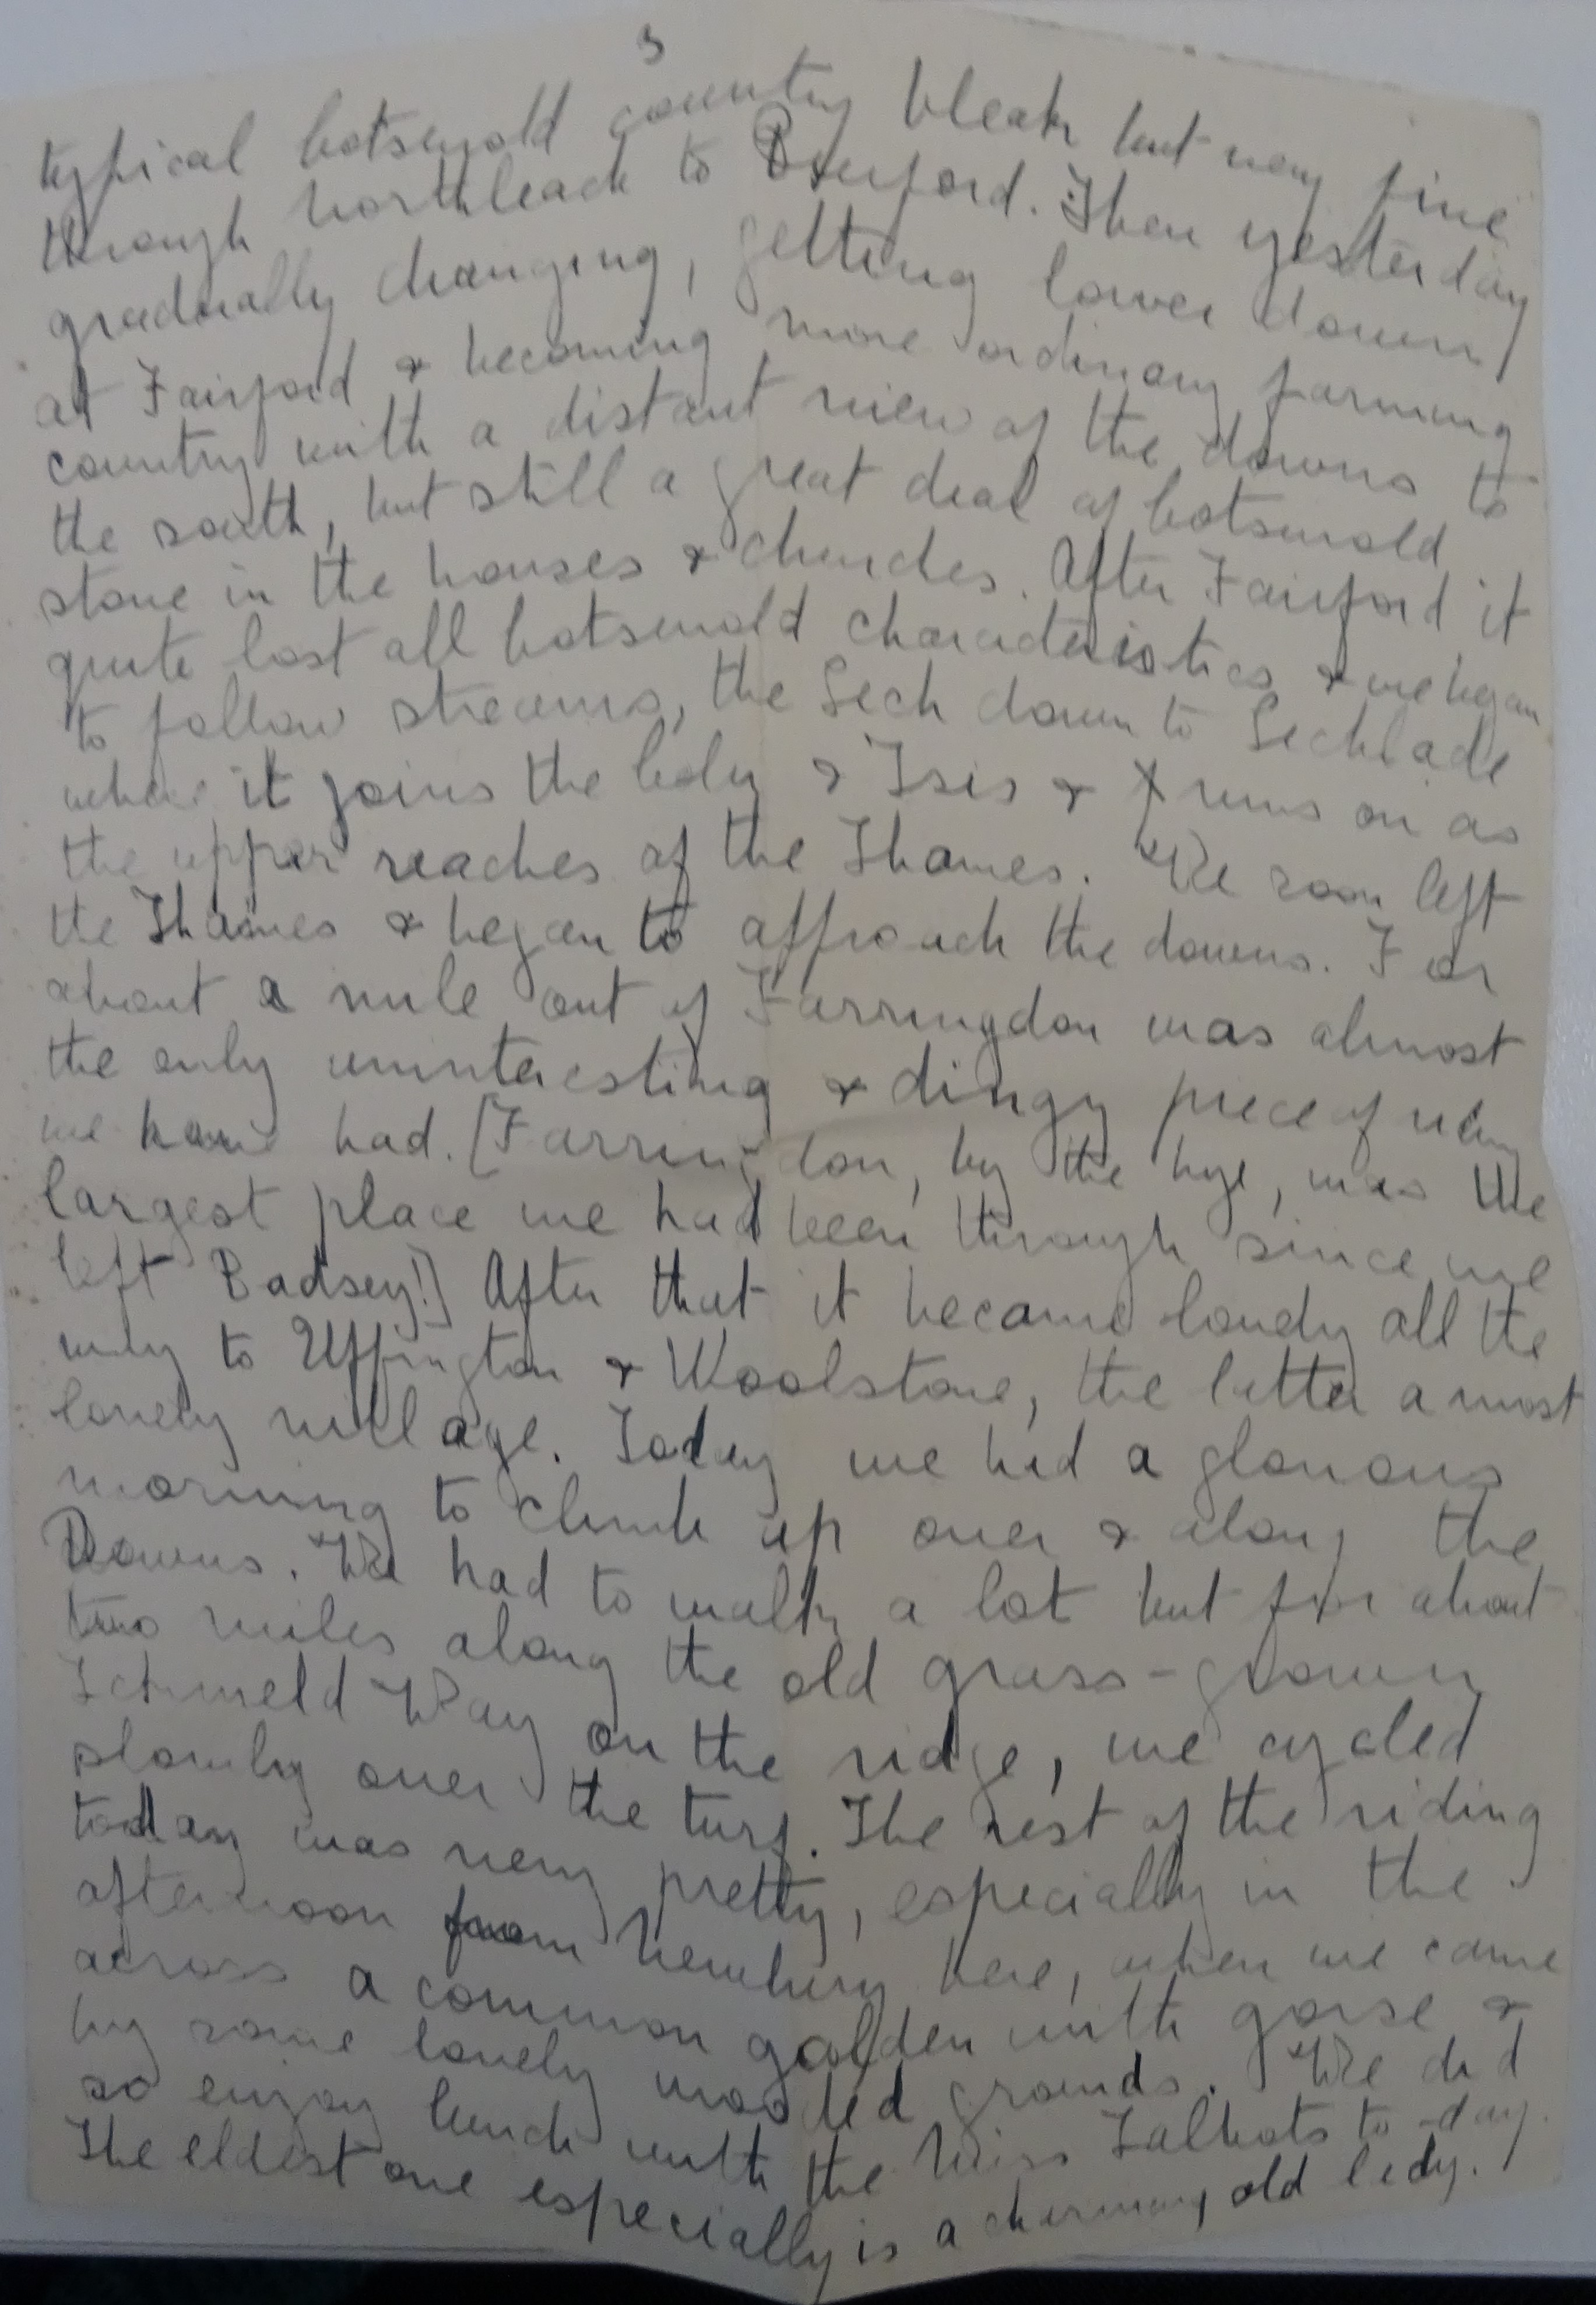 3
typical Cotswold country bleak but very fine
through Northleach to Burford. Then yesterday
gradually changing, getting lower down
at Fairford & becoming more ordinary farming
country with a distant view of the downs to
the south, but still a great deal of Cotswold
stone in the houses & churches. After Fairford it
quite lost all Cotswold characteristics & we began
to follow streams, the Lech down to Lechlade
where it joins the Coln & Isis & runs on as
the upper reaches of the Thames. We soon left
the Thames & began to approach the downs. For
about a mile out of Farringdon was almost
the only uninteresting & dingy piece of
we have had. [Farringdon, by the bye, was the
largest place we had been through since we
left Badsey!] After that it became lovely all the
way to Uffington & Woolstone, the latter a most
lovely village. Today we had a glorious
morning to climb up over & along the
Downs. We had to walk a lot but for about
two miles along the old grass-grown
Icknield Way on the ridge, we cycled
slowly over the turf. The rest of the riding
today was very pretty, especially in the
afternoon from Newbury here, when we came
across a common golden with gorse &
by some lovely wooded grounds. We did
so enjoy lunch with the Miss Talbots to-day.
The eldest one especially is a charming old lady.